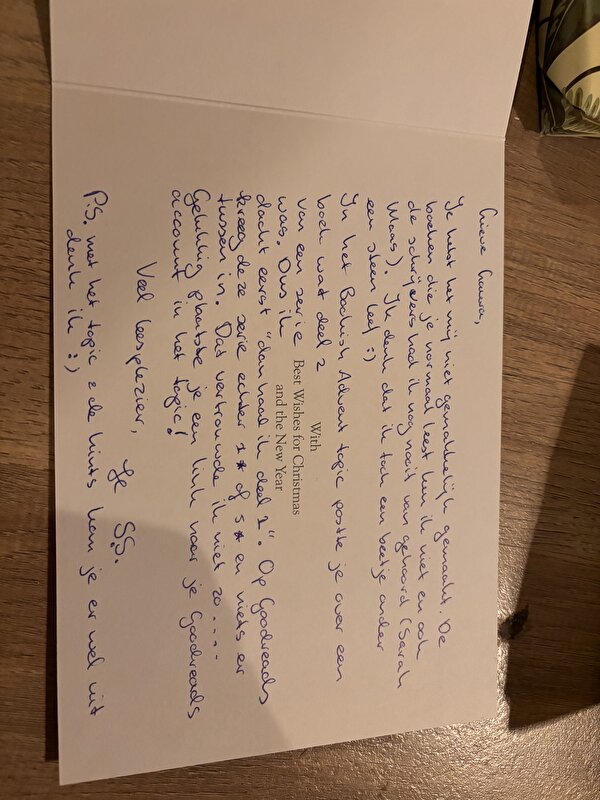 Lieve Laura,
Je hebt het mij niet gemakkelijk gemaakt. De
boeken die je normaal leest ken ik niet en ook
de schrijvers had ik nog nooit van gehoord (Sarah
Maas). Ik denk dat ik toch een beetje onder
een steen leef :)
In het Bookish Advent topic postte je over een
boek wat deel 2
van een serie
was. Dus ik
dacht eerst "dan haal ik deel 1". Op Goodreads
kreeg deze serie echter 1* of 5* en niets er
tussen in. Dat vertrouwde ik niet zo....
Gelukkig plaatste je een link naar je Goodreads
account in het topic!
Veel leesplezier,
Je S.S.
P.S. met het topic & de hints kom je er wel uit
denk ik :)
With
Best Wishes for Christmas
and the New Year